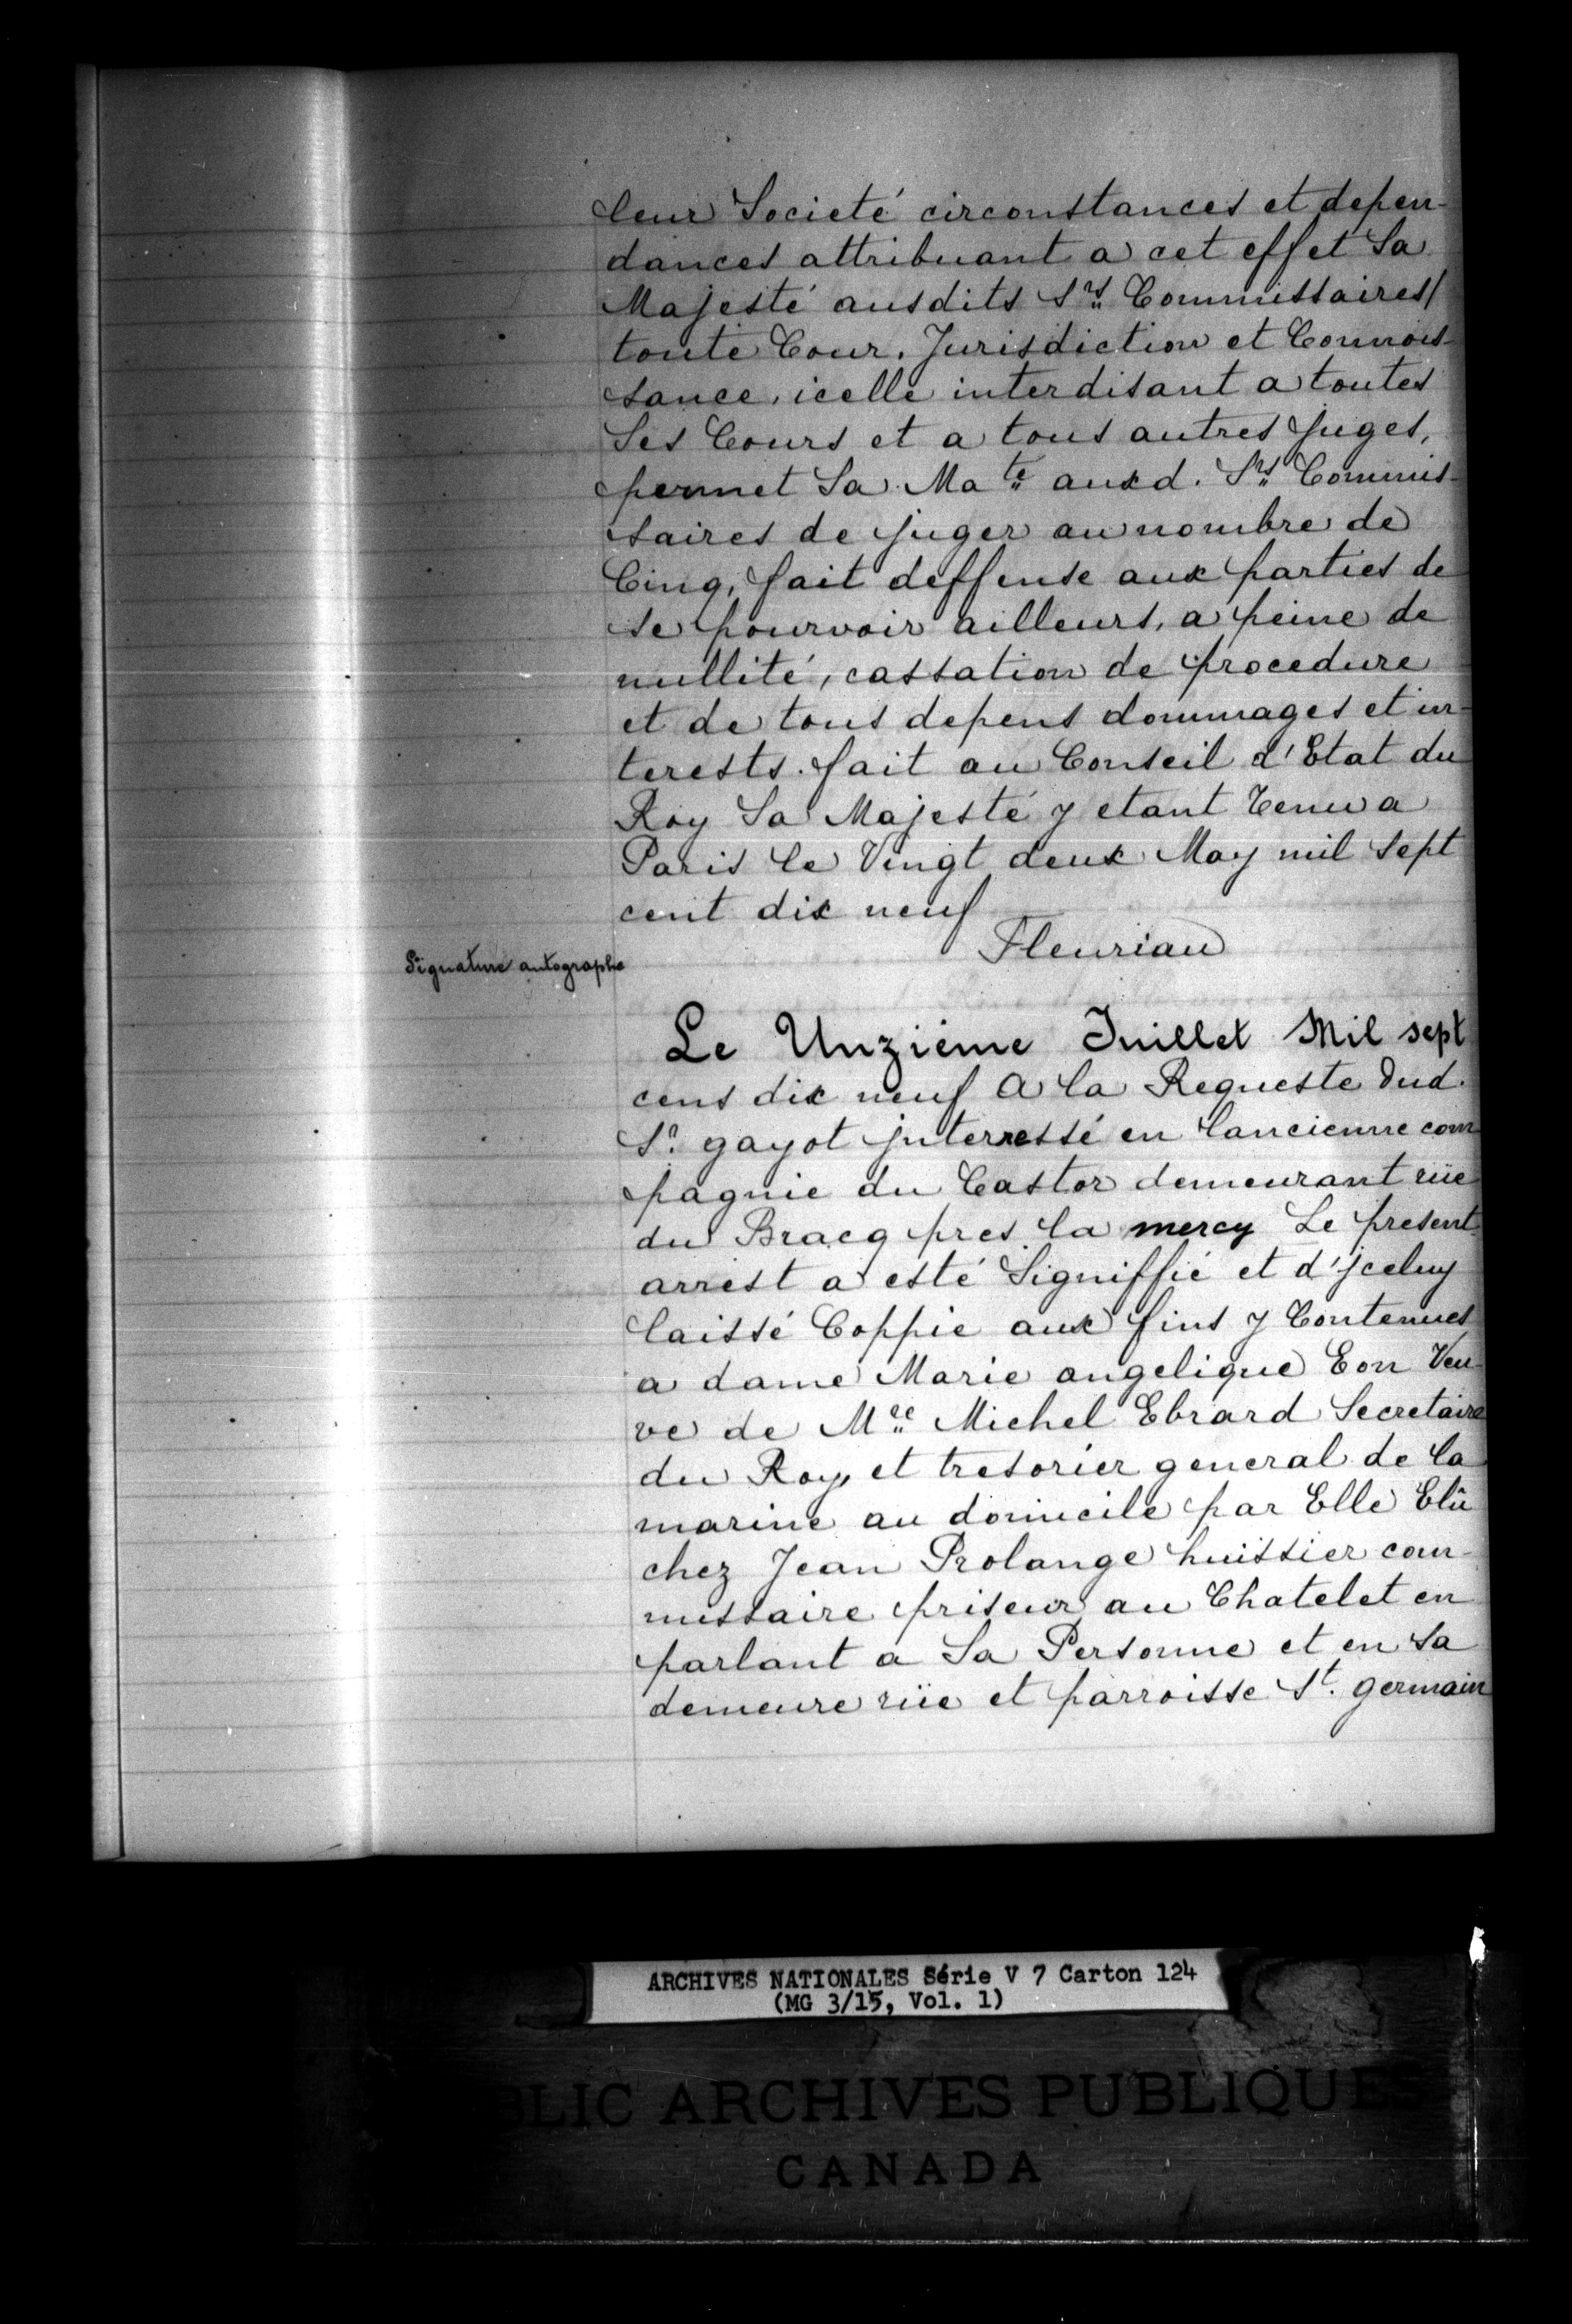 leur Societé circonstances et depen-
dances attribuant a cet effet Sa
Majesté ausdits Srs Commissaires/
toute Cour, Jurisdiction et Connois-
sance, icelle interdisant a toutes
Ses Cours et a tous autres Juges,
permet Sa Mate auxd. Srs Commis-
saires de juger au nombre de
Cinq, fait deffense aux parties de
se pourvoir ailleurs, a peine de
nullité, cassation de procedure
et de tous depens dommages et in-
terests. fait au Conseil d'Etat du
Roy Sa Majesté y etant Tenu a
Paris le Vingt deux May mil sept
cent dix neuf
Fleuriau
Signature autographe
Le Unziéme Juillet Mil sept
cens dix neuf A la Requeste dud.
Sr. gayot jnterressé en Lancienne com
pagnie du Castor demeurant rüe
du Bracq pres la mercy Le present
arrest a esté Signiffié et d'jceluy
laissé Coppie aux fins y Contenues
a dame Marie angelique Eon Veu-
ve de Mre Michel Ebrard Secretaire
du Roy, et tresorier general de la
marine au domicile par Elle Elû
chez Jean Prolange huissier com-
missaire priseur au Chatelet en
parlant a Sa Personne et en sa
demeure rüe et parroisse St. germain
ARCHIVES NATIONALES Série V 7 Carton 124
(MG 3/15, Vol. 1)
BLIC ARCHIVES PUBLIQUES
CANADA